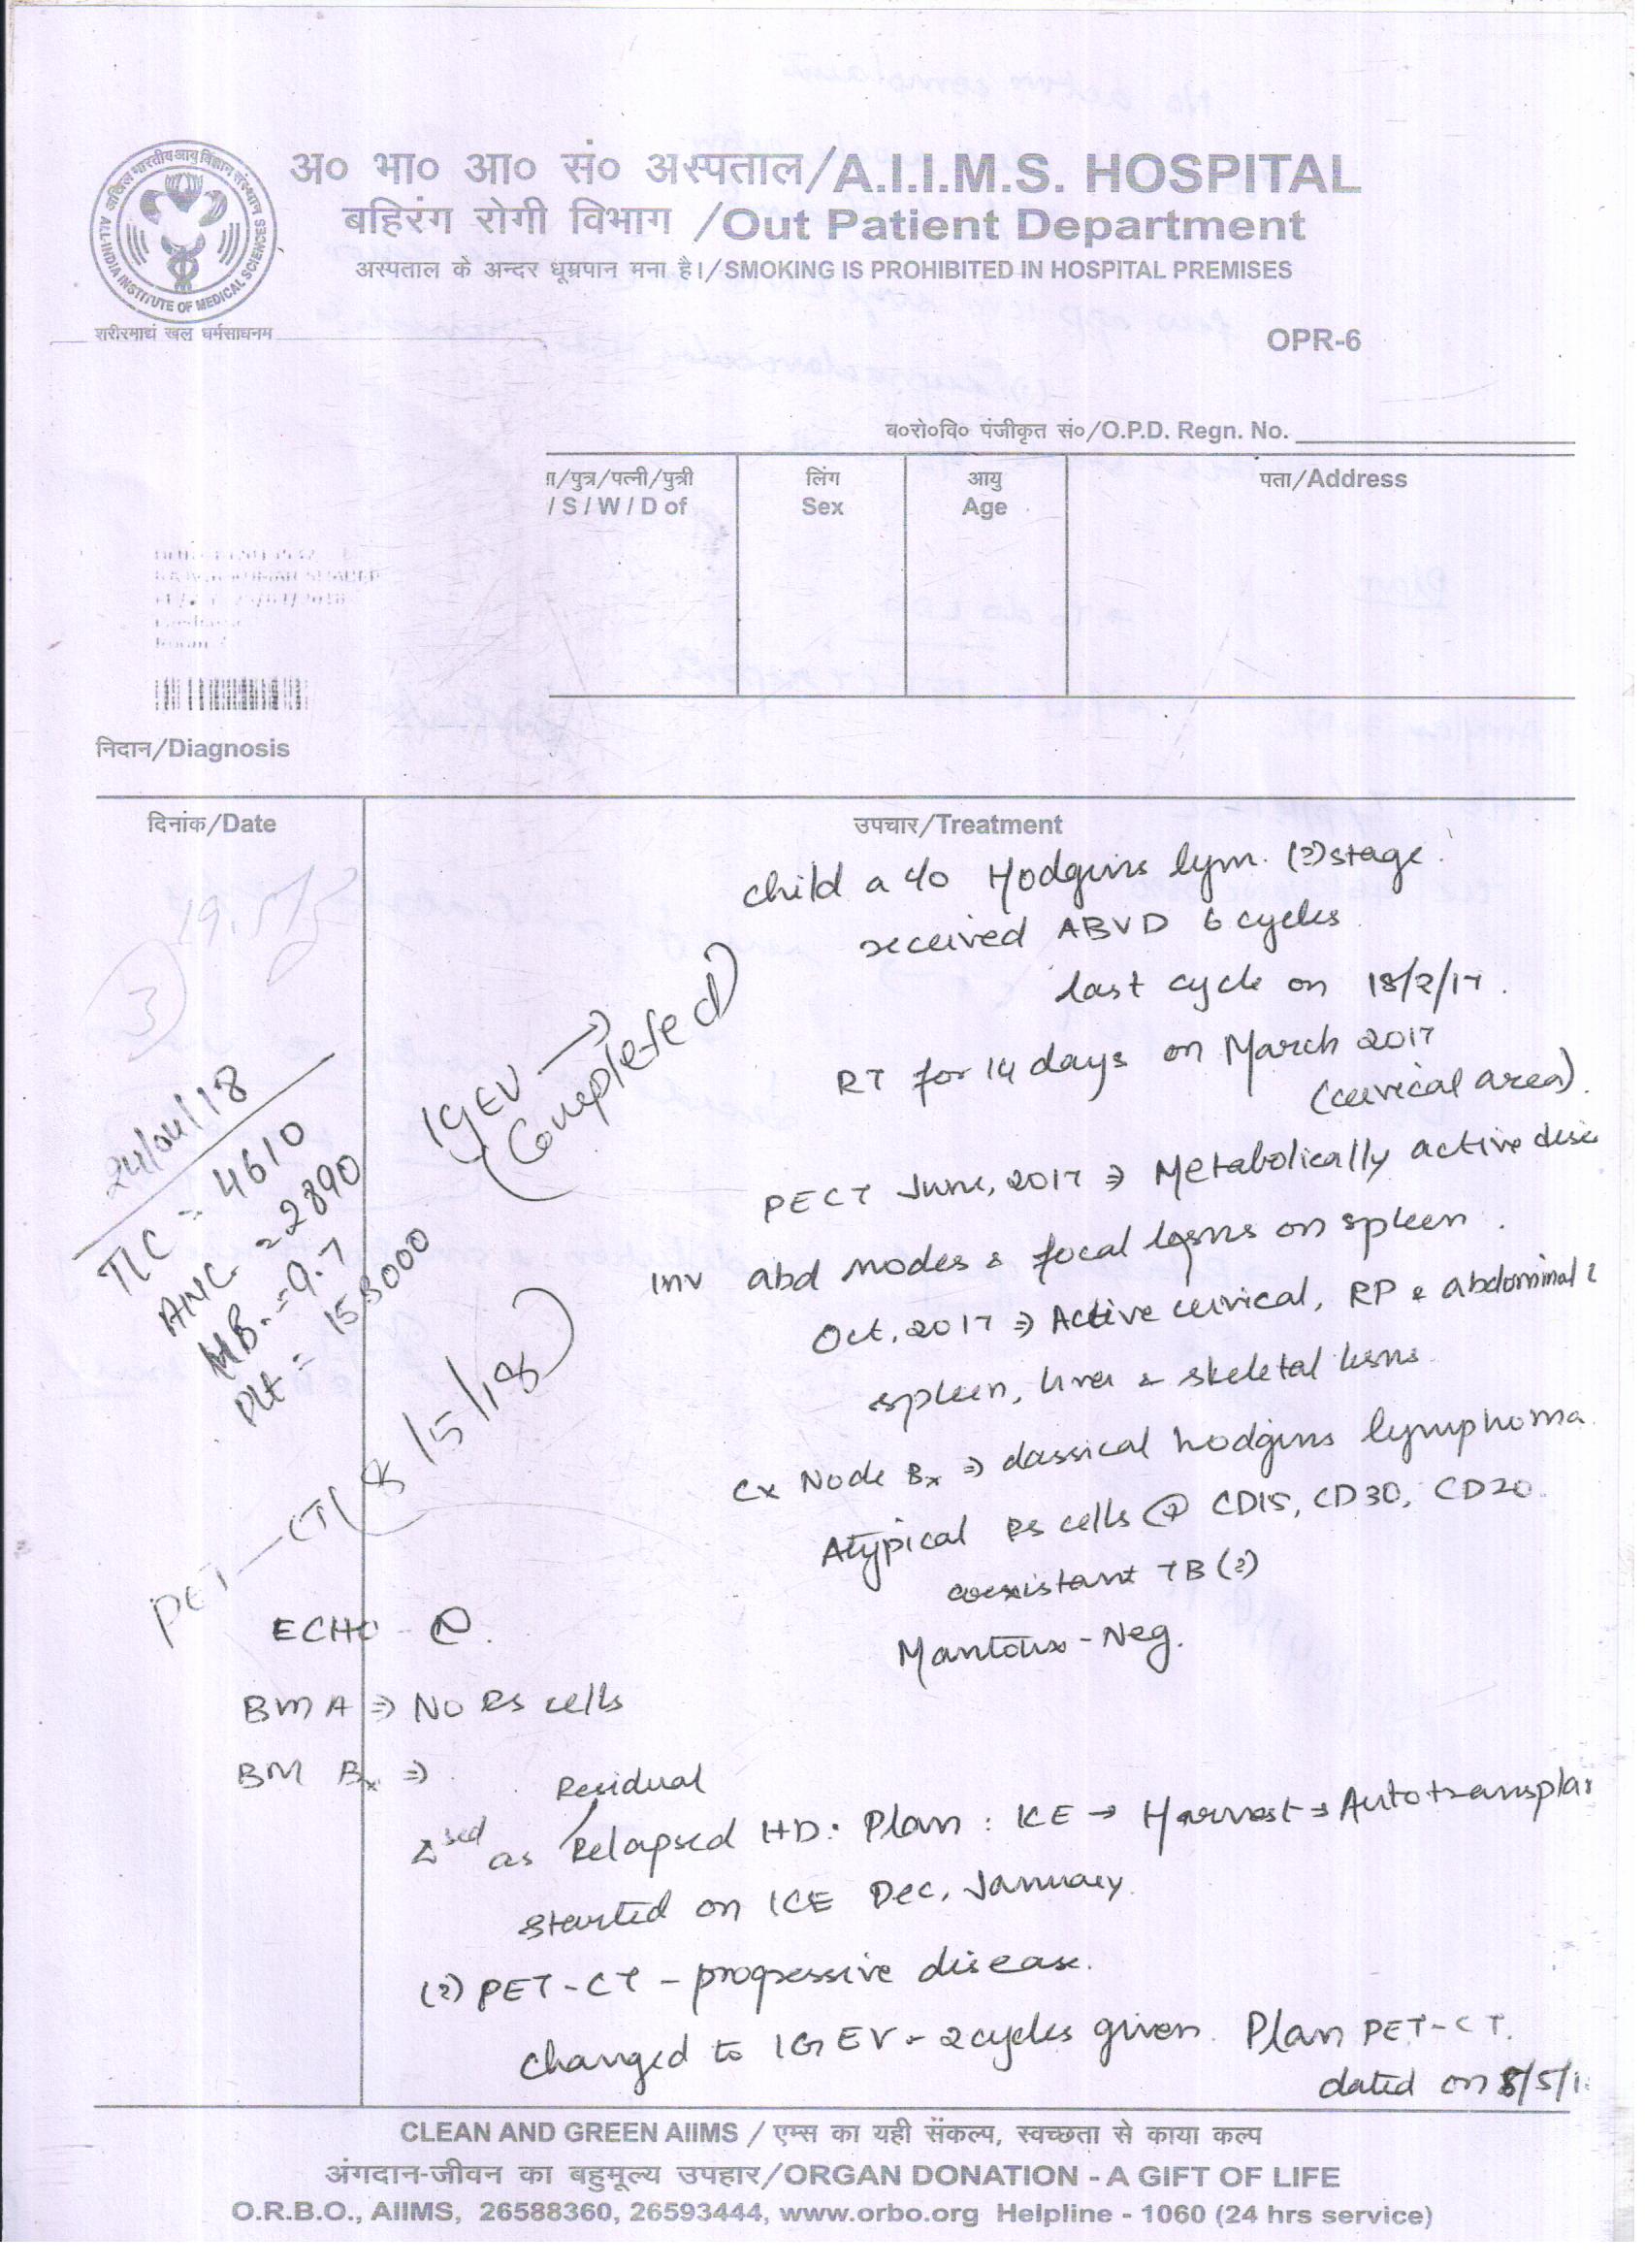 अ० भा० आ० सं० अस्पताल/A.I.I.M.S. HOSPITAL
बहिरंग रोगी विभाग /Out Patient Department
अस्पताल के अन्दर धूम्रपान मना है।/SMOKING IS PROHIBITED IN HOSPITAL PREMISES
ALL-INDIA INSTITUTE OF MEDICAL SCIENCES
शरीरमाद्यं खलु धर्मसाधनम
OPR-6
ब०रो०वि० पंजीकृत सं०/O.P.D. Regn. No.
/पुत्र/पत्नी/पुत्री
/ S / W / D of
लिंग
Sex
आयु
Age
पता/Address
निदान/Diagnosis
दिनांक/Date
उपचार/Treatment
child a c/o Hodgins lym. (?) stage.
received ABVD 6 cycles
last cycle on 18/2/17.
RT for 14 days on March 2017
(cervical area).
PECT June, 2017 ⇒ Metabolically active
inv abd nodes & focal lesns on spleen.
Oct, 2017 ⇒ Active cervical, RP & abdominal
spleen, liver & skeletal lesns
Cx Node Bx ⇒ classical hodgins lymphoma
Atypical RS cells CD15, CD30, CD20.
coexistant TB (?)
Mantoux - Neg.
24/04/18
TLC = 4610
ANC = 2890
HB. = 9.7
Plt =
IGEV →
(Completed)
PET-CT (8/5/18)
ECHO - (N).
BMA ⇒ NO RS cells
BM Bx ⇒
Residual
Δsed as Relapsed HD. Plan : ICE → Harvest →
started on ICE Dec, January.
(?) PET-CT - progressive disease.
changed to IGEV - 2 cycles given. Plan PET-CT.
dated on 8/5/1
CLEAN AND GREEN AIIMS / एम्स का यही संकल्प, स्वच्छता से काया कल्प
अंगदान-जीवन का बहुमूल्य उपहार/ORGAN DONATION - A GIFT OF LIFE
O.R.B.O., AIIMS, 26588360, 26593444, www.orbo.org Helpline - 1060 (24 hrs service)